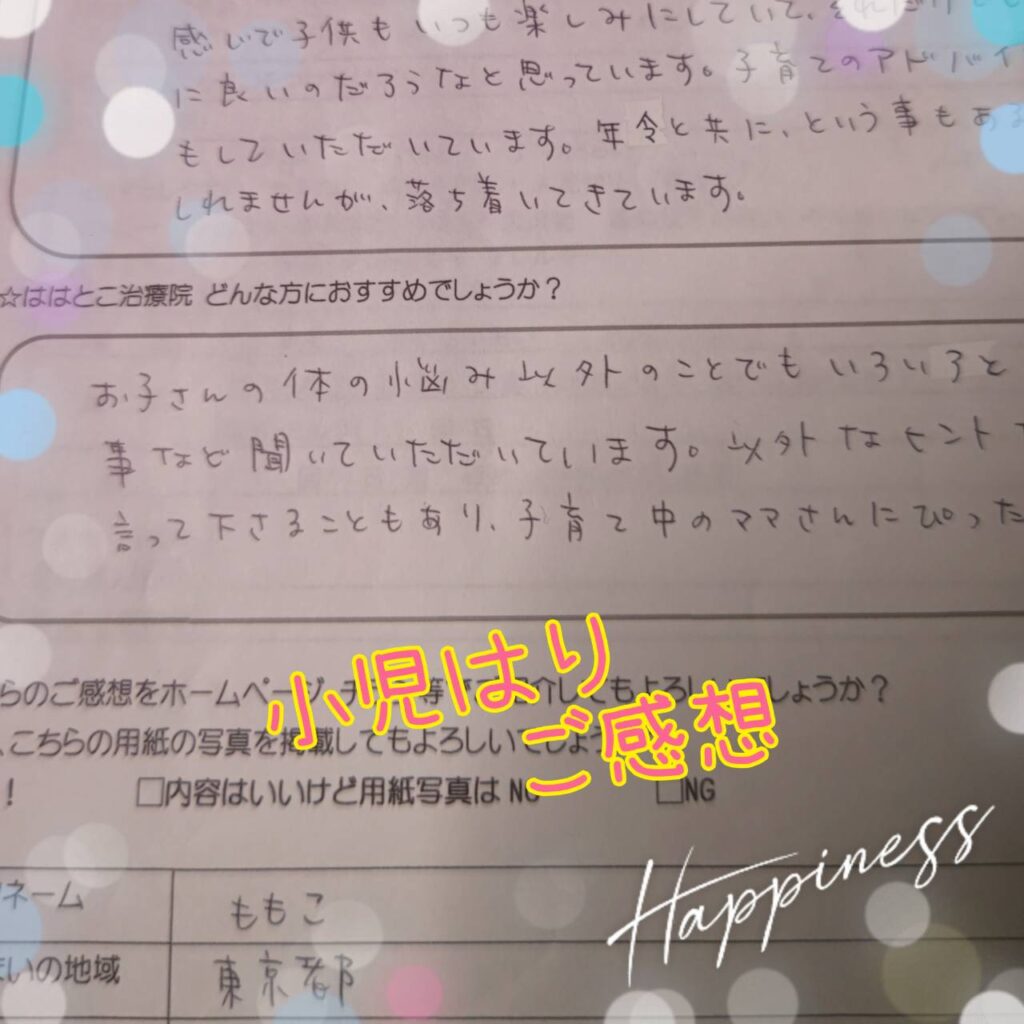 感じで子供もいつも楽しみにしていて、それだけでも
に良いのだろうなと思っています。子育てのアドバイ
もしていただいています。年令と共に、という事もある
しれませんが、落ち着いてきています。
☆ははとこ治療院 どんな方におすすめでしょうか？
お子さんの体の悩み以外のことでもいろいろと
事など聞いていただいています。以外なヒントを
言って下さることもあり、子育て中のママさんにぴった
小児はり
ご感想
らのご感想をホームページ・チラシ等でご紹介してもよろしいでしょうか？
、こちらの用紙の写真を掲載してもよろしいでしょう
！ □内容はいいけど用紙写真は NG □NG
Happiness
ネーム ももこ
まいの地域 東京都